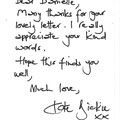 Dear Danielle,
Many thanks for your
lovely letter. I really
appreciate your kind
words.
Hope this finds you
well,
Much love,
Kate Dickie
xx